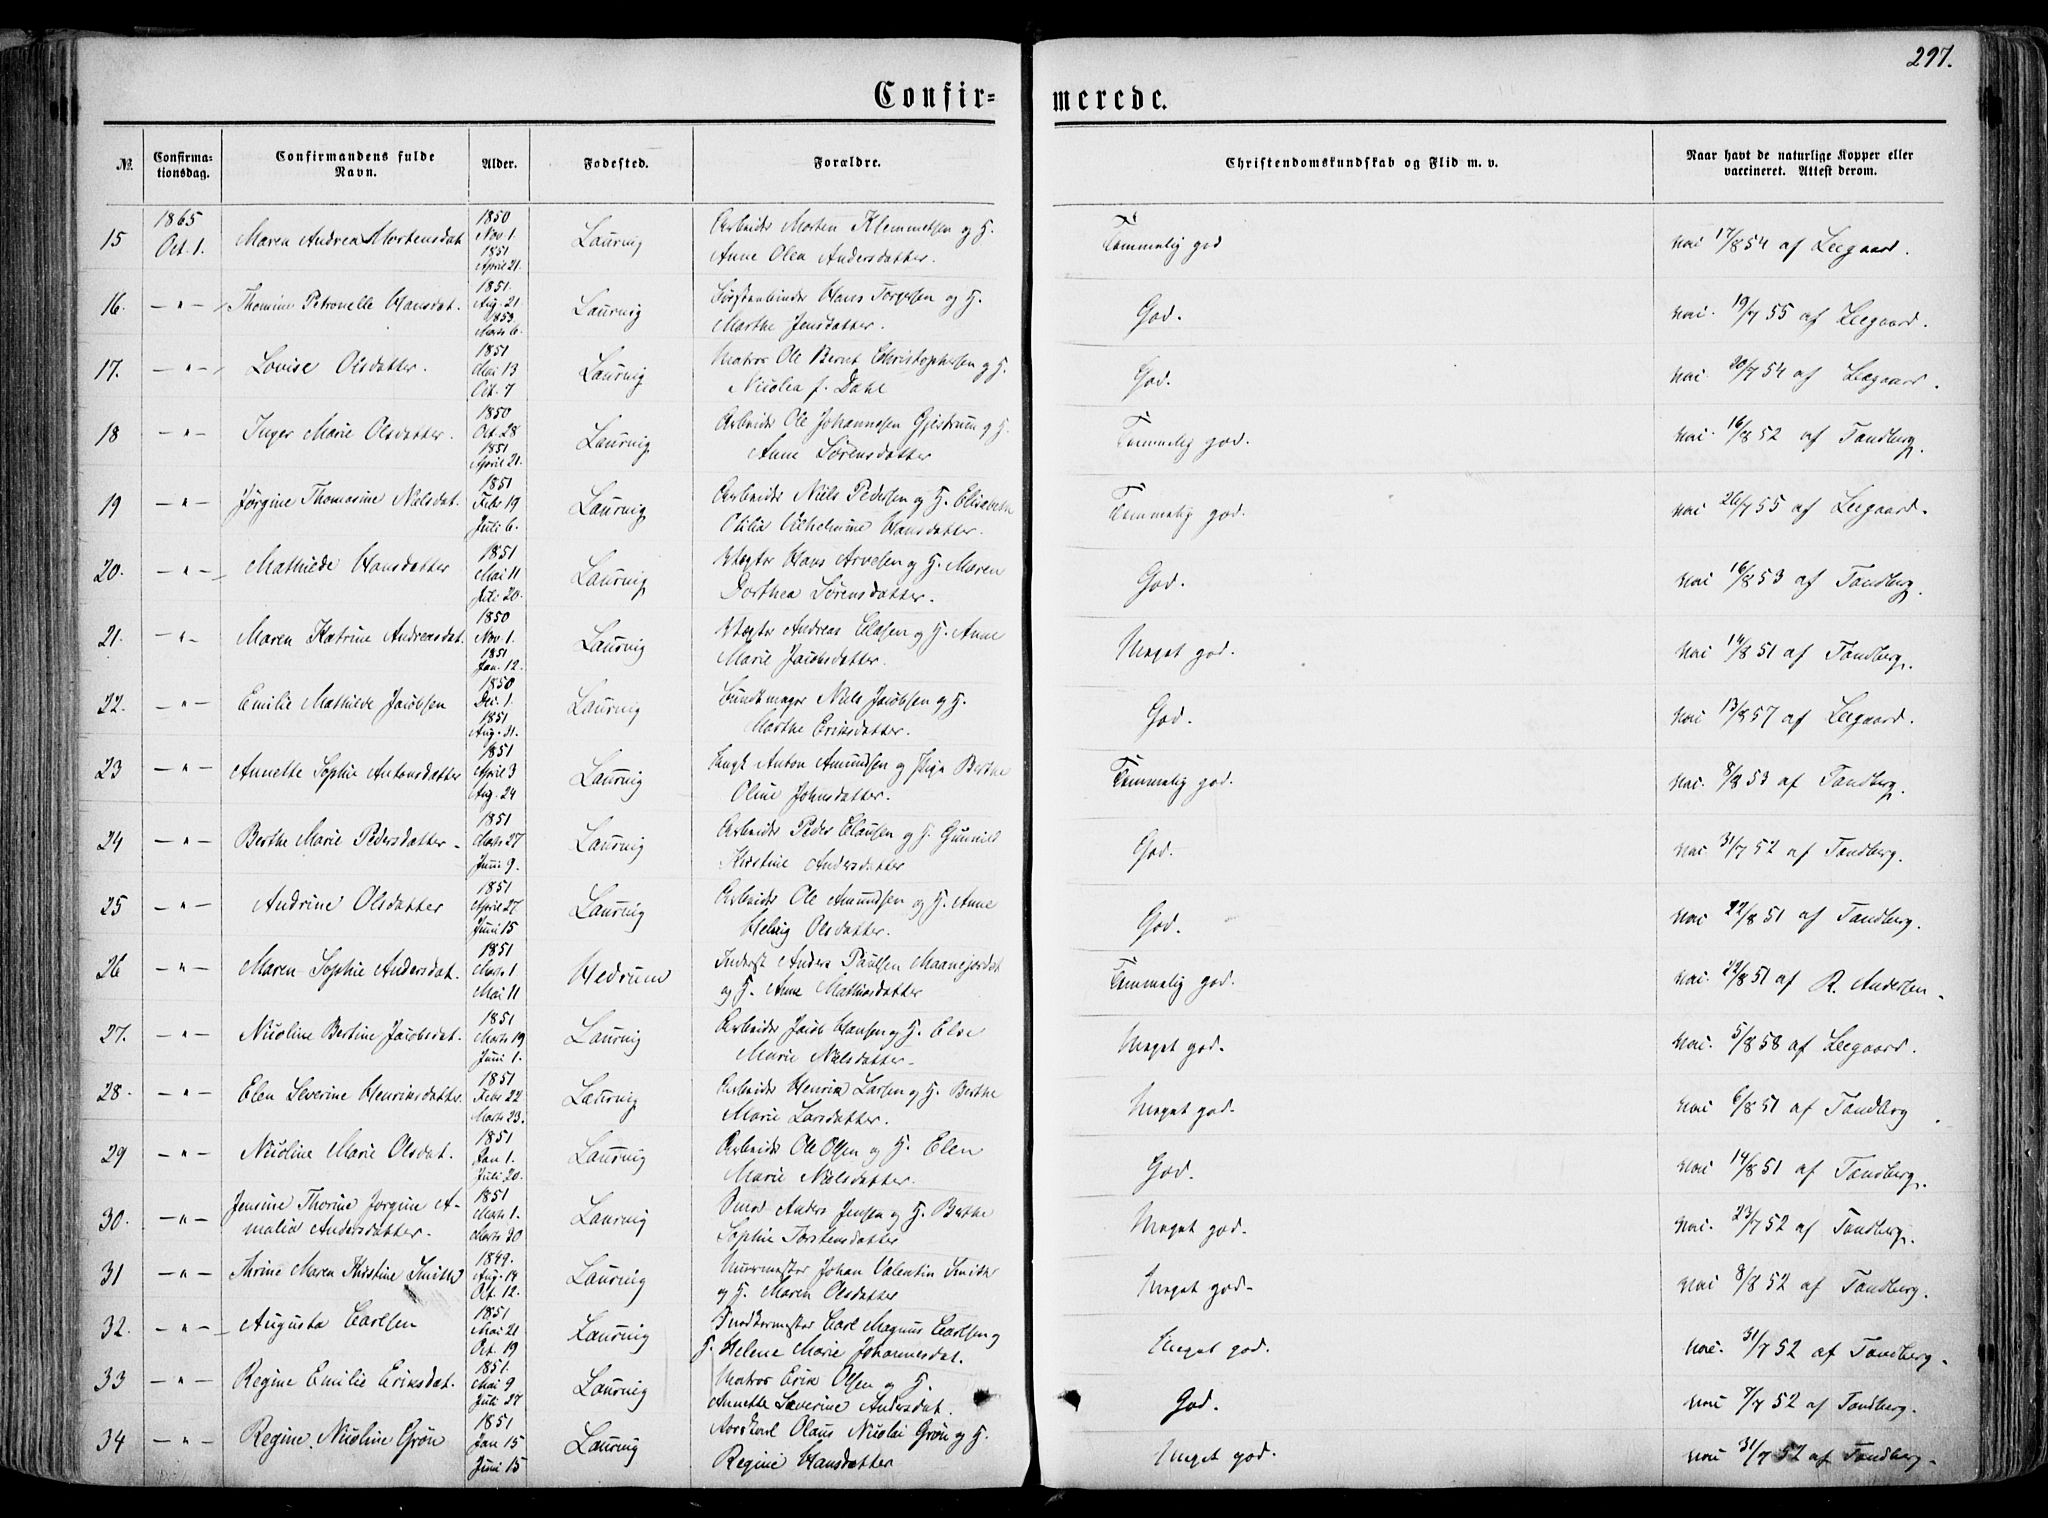 297.
Confir-
merede.
№
Confirma-
tionsdag.
Confirmandens fulde
Navn.
Alder.
Fodested.
Forældre.
Christendomskundskab og Flid m. v.
Naar havt de naturlige Kopper eller
vaccineret. Attest derom.
1865
1850
Arbeider Morten Klemmetsen og H.
15 Oct. 1. Maren Andrea Mortensdat. Nov 1. Laurvig Temmelig god vac 17/8 54 af Leegaard.
1851
April 21. Anne Olea Andersdatter.
1851. Børstenbinder Hans Torgersen og H.
16. — " — Thomine Petronelle Hansdat. Aug. 21 Laurvig God. vac. 19/7 55 af Leegaard.
1853.
Marts 6. Marthe Jensdatter.
1851 Matros Ole Bernt Christophersen og H.
17. — " — Lovise Olsdatter. Mai 13 Laurvig God. vac. 20/7 54 af Leegaard.
Oct. 7 Nicolea f. Dahl
1850 Arbeider Ole Johannesen Gjestrum og H.
18 — " — Inger Marie Olsdatter. Oct. 28 Laurvig Temmelig god. vac. 16/8 52 af Tandberg.
1851
April 21. Anne Sørensdatter
1851 Arbeider Niels Pedersen og H. Elisabeth
19 — " — Jørgine Thomasine Nielsdat. Febr 19 Laurvig Temmelig god. vac 26/7 55 af Leegaard.
Juli 6. Otilia Vilhelmine Hansdatter.
1851 Vægter Hans Arvesen og H. Maren
20. — " — Mathilde Hansdatter Mai 11 Laurvig God. vac 16/8 53 af Tandberg.
Juli 20. Dorthea Sørensdatter.
1850 Vægter Andreas Clasen og H. Anne
21. — " — Maren Katrine Andreasdat. Nov 1. Laurvig Meget god. vac 14/8 51 af Tandberg.
1851
Jan. 12. Marie Jacobsdatter.
1850 Bundtmager Niels Jacobsen og H.
22. — " — Emilie Mathilde Jacobsen Dec. 1. Laurvig God. vac 13/8 57 af Leegaard.
1851
Aug. 31. Marthe Eriksdatter.
1851 Ungk Anton Amundsen og Pige Berthe
23 — " — Annette Sophie Antonsdatter April 3 Laurvig Temmelig god. vac. 8/8 53 af Tandberg.
Aug. 24 Oline Johnsdatter.
1851 Arbeider Peder Clausen og H. Gunnild
24 — " — Berthe Marie Pedersdatter. Marts 27 Laurvig God. vac 31/7 52 af Tandberg.
Juni 9. Kirstine Andersdatter
1851 Arbeider Ole Amundsen og H. Anne
25 — " — Andrine Olsdatter April 27 Laurvig God. vac 22/8 51 af Tandberg.
Juni 15 Helvig Olsdatter.
1851 Inderst Anders Paulsen Maanejordet
26 — " — Maren Sophie Andersdat. Marts 1. Hedrum Temmelig god. vac. 22/8 51 af R. Andersen.
Mai 11 og H. Anne Mathiasdatter
1851 Arbeider Jacob Hansen og H. Else
27. — " — Nicoline Bertine Jacobsdat. Marts 19 Laurvig Meget god. vac. 5/8 58 af Leegaard.
Juni 1. Marie Nielsdatter.
1851 Arbeider Henrik Larsen og H. Berthe
28. — " — Elen Severine Henriksdatter. Febr 22 Laurvig Meget god. vac 6/8 51 af Tandberg.
Marts 23. Marie Larsdatter.
1851 Arbeider Ole Olsen og H. Elen
29 — " — Nicoline Marie Olsdat. Jan 1. Laurvig God. vac 14/8 51 af Tandberg.
Juli 20. Marie Nielsdatter.
Jensine Thorine Jorgine A- 1851 Smed Anders Jensen og H. Berthe
30. — " — malia Andersdatter. Marts 1. Laurvig Meget god. vac. 23/7 52 af Tandberg.
Marts 30 Sophie Torstensdatter
1849. Murmester Johan Valentin Smith
31 — " — Thrine Maren Kirstine Smith Aug. 14 Laurvig Meget god. vac 8/8 52 af Tandberg.
Oct. 12. og H. Maren Olsdatter
1851 Snedkermester Carl Magnus Carlsen og
32. — " — Augusta Carlsen Mai 21 Laurvig Meget god. vac. 31/7 52 af Tandberg.
Oct. 19 H. Helene Marie Johannesdat.
1851. Matros Erik Olsen og H.
33 — " — Regine Emilie Eriksdat. Mai 9 Laurvig God. vac 7/7 52 af Tandberg.
Juli 27 Annette Severine Andersdat.
1851 Olaus Nicolai Grøn og H.
34 — " — Regine Nicoline Grøn Jan 15 Laurvig Meget god. vac 31/7 52 af Tandberg.
Juni 15 Regine Hansdatter